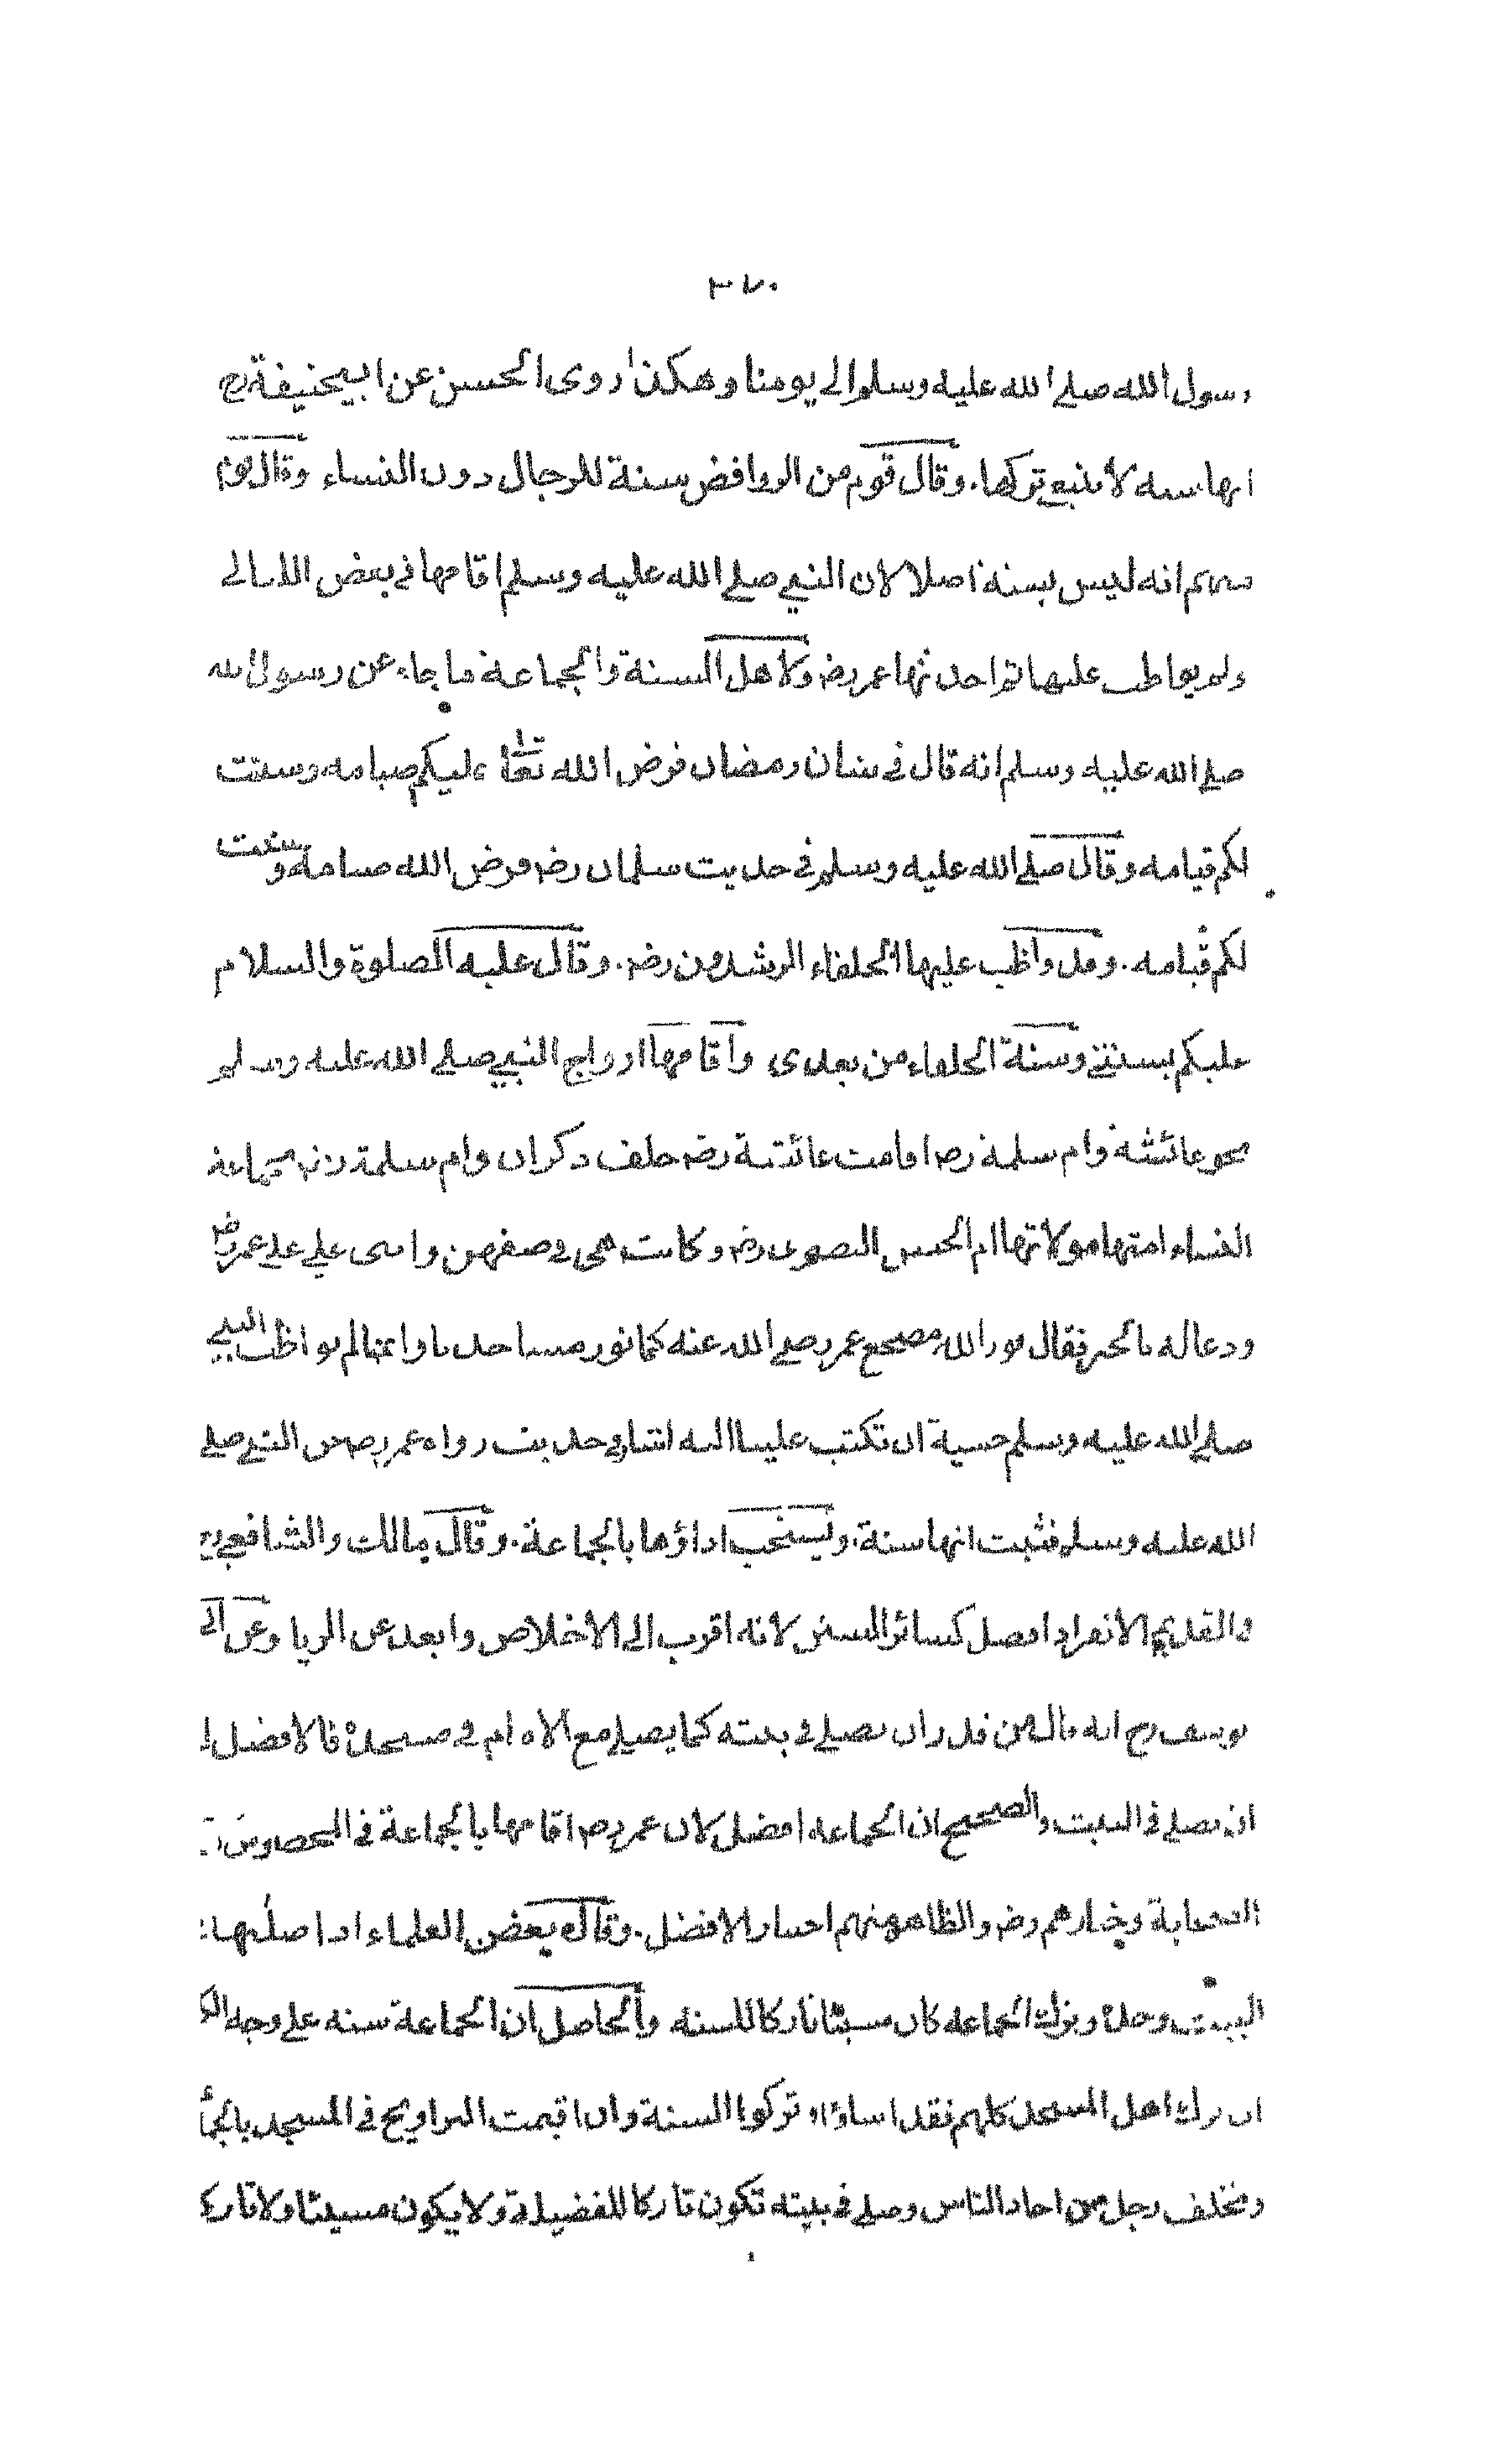 ٣٧٠
رسول الله صلى الله عليه وسلم الى يومنا وهكذا روى الحسن عن ابيحنيفة رح
انها سنة لا ينبغي تركها. وقال قوم من الروافض سنة للرجال دون النساء وقال قوم
منهم انه ليس بسنة اصلا لان النبي صلى الله عليه وسلم اقامها في بعض الليالي
ولم يواظب عليها ثم احدثها عمر رضه ولاهل السنة والجماعة ما جاء عن رسول الله
صلى الله عليه وسلم انه قال في شان رمضان فرض الله تعالى عليكم صيامه وسننت
لكم قيامه وقال صلى الله عليه وسلم في حديث سلمان رضه فرض الله صيامه وسننت
لكم قيامه. وقد واظب عليها الخلفاء الرشدون رضه. وقال عليه الصلوة والسلام
عليكم بسنتي وسنة الخلفاء من بعدي واقامها ازواج النبي صلى الله عليه وسلم
نحو عائشة وام سلمة رضه اقامت عائشة رضه خلف ذكوان وام سلمة رضه بجماعة
النساء امتها مولاتها ام الحسن البصري رضه وكانت هي في صفهن واثنى علي على عمر رضه
ودعا له بالخير فقال نور الله مضجع عمر رضي الله عنه كما نور مساجدنا وانما لم يواظب النبي
صلى الله عليه وسلم خشية ان تكتب علينا اليه اشار في حديث رواه عمر رضه عن النبي صلى
الله عليه وسلم فثبت انها سنة. ويستحب اداؤها بالجماعة. وقال مالك والشافعي رح
والقديم الانفراد افضل كسائر السنن لانه اقرب الى الاخلاص وابعد عن الريا وعن ابي
يوسف رح انه قال من قدر ان يصلي في بيته كما يصلي مع الامام في مسجده فالافضل
ان يصلي في البيت والصحيح ان الجماعة افضل لان عمر رضه اقامها بالجماعة في المحضر من
الصحابة وخيارهم رضه والظاهر منهم اختيار الافضل. وقال بعض العلماء اذا صليها
البيت وحده وترك الجماعة كان مسيئا تاركا للسنة والحاصل ان الجماعة سنة على وجه
ان ترك اهل المسجد كلهم فقد اساؤا وتركوا السنة وان اقيمت التراويح في المسجد بالجما
وتخلف رجل من احاد الناس وصلى في بيته تكون تاركا للفضيلة ولا يكون مسيئا ولا تارك